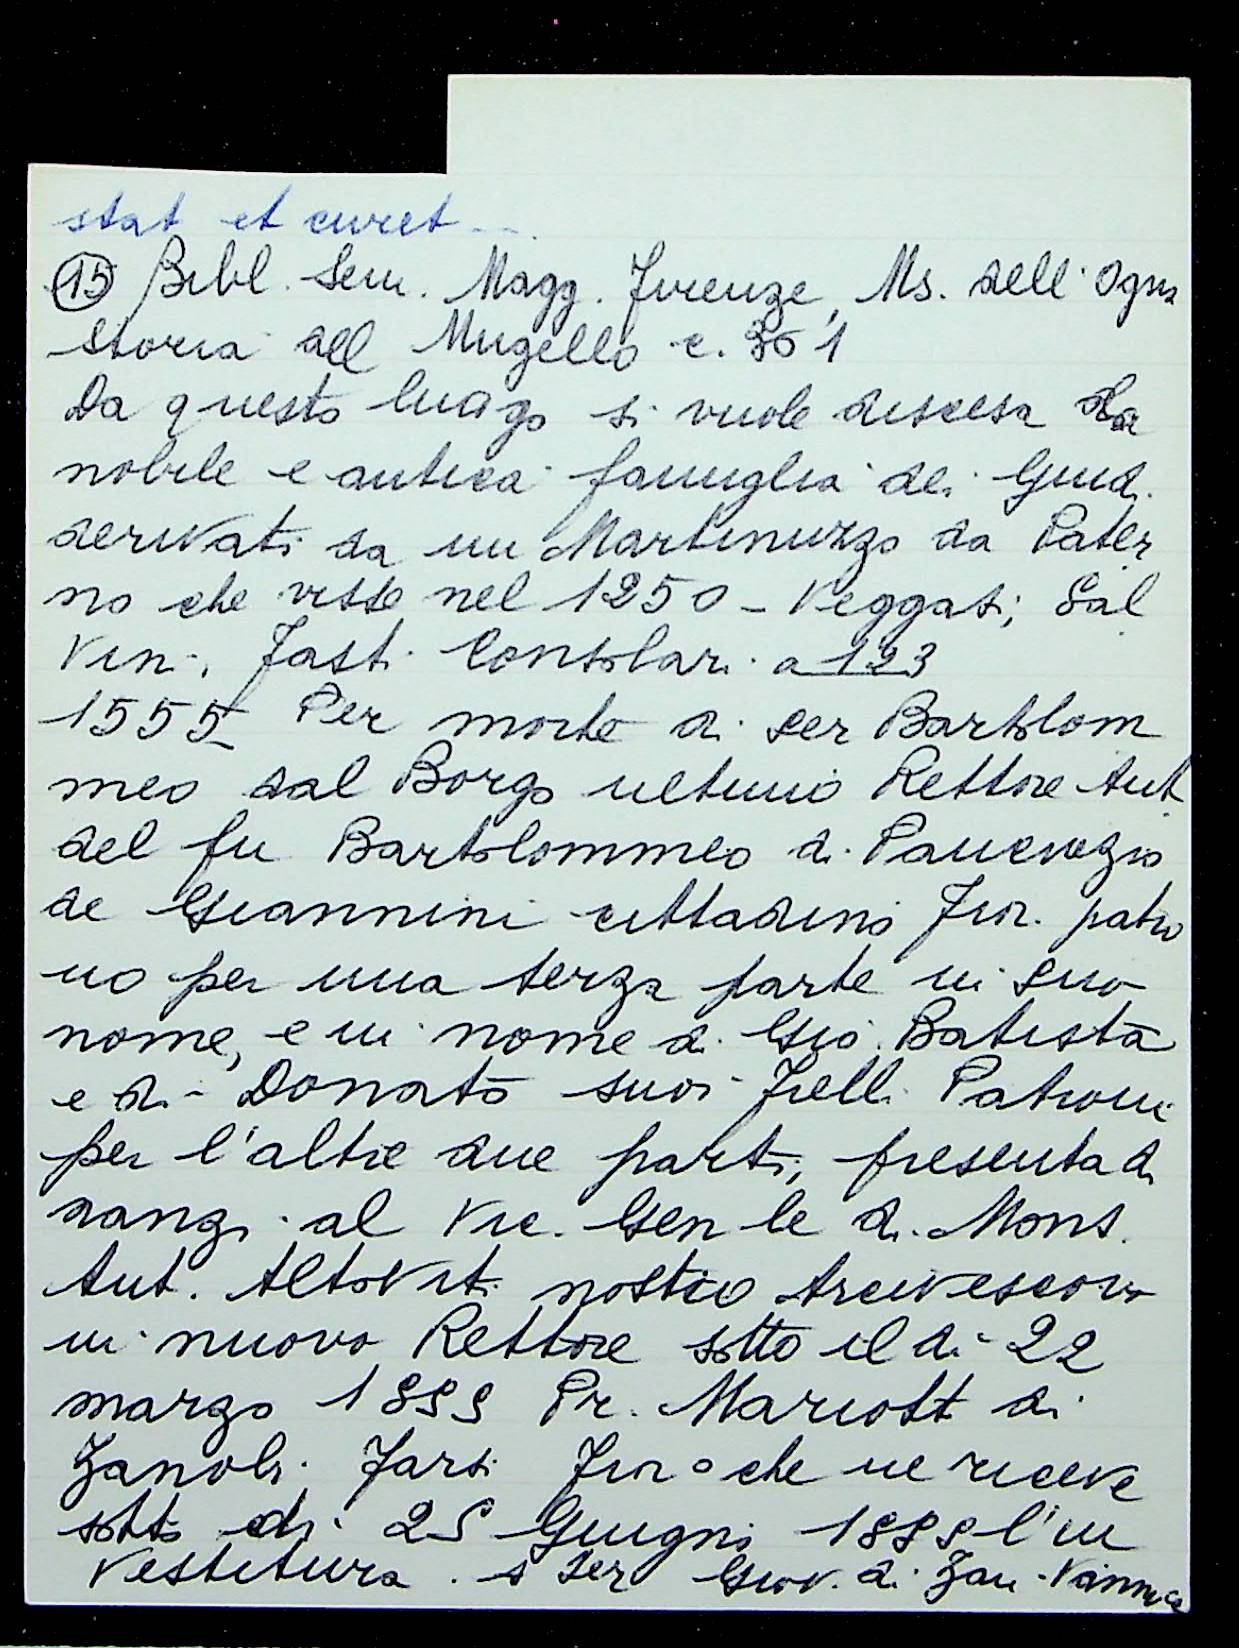 stat et curet ...
(15) Bibl. Sem. Magg. Firenze, Ms. dell'Ogna
Storia del Mugello c. 361
Da questo luogo si vuole discesa la
nobile e antica famiglia dei Giudi
derivati da un Martinuzzo da Pater
no che visse nel 1250 - Veggasi; Sal
vini, Fasti Consolari a 123
1555 Per morte di ser Bartolom
meo dal Borgo ultimo Rettore Ant.
del fu Bartolommeo di
de Giannini cittadino Fior. patro
no per una terza parte in suo
nome, e in nome di Gio. Batista
e di Donato suoi Frelli Patroni
per l'altre due parti, presenta di
nanzi al Vic. Gen le di Mons.
Ant. Altoviti nostro Arcivescovo
in nuovo Rettore sotto il di 22
marzo 1555 Pr. Mariotti di
Zanobi Farsi Fior o che ne riceve
sotto di 25 Giugno 1555 l'in
vestitura. a ser Giov. di Zan-